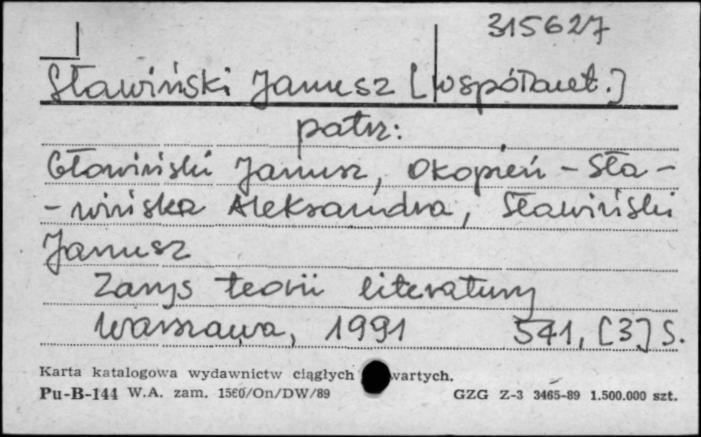 315627
Sławiński Janusz [współaut.]
patrz:
Głowiński Janusz, Okopień-Sła-
-wińska Aleksandra, Sławiński
Janusz
Zarys teorii literatury
Warszawa, 1991 541, [3] s.
Karta katalogowa wydawnictw ciągłych wartych.
Pu-B-144 W.A. zam. 1560/On/DW/89 GZG Z-3 3465-89 1.500.000 szt.